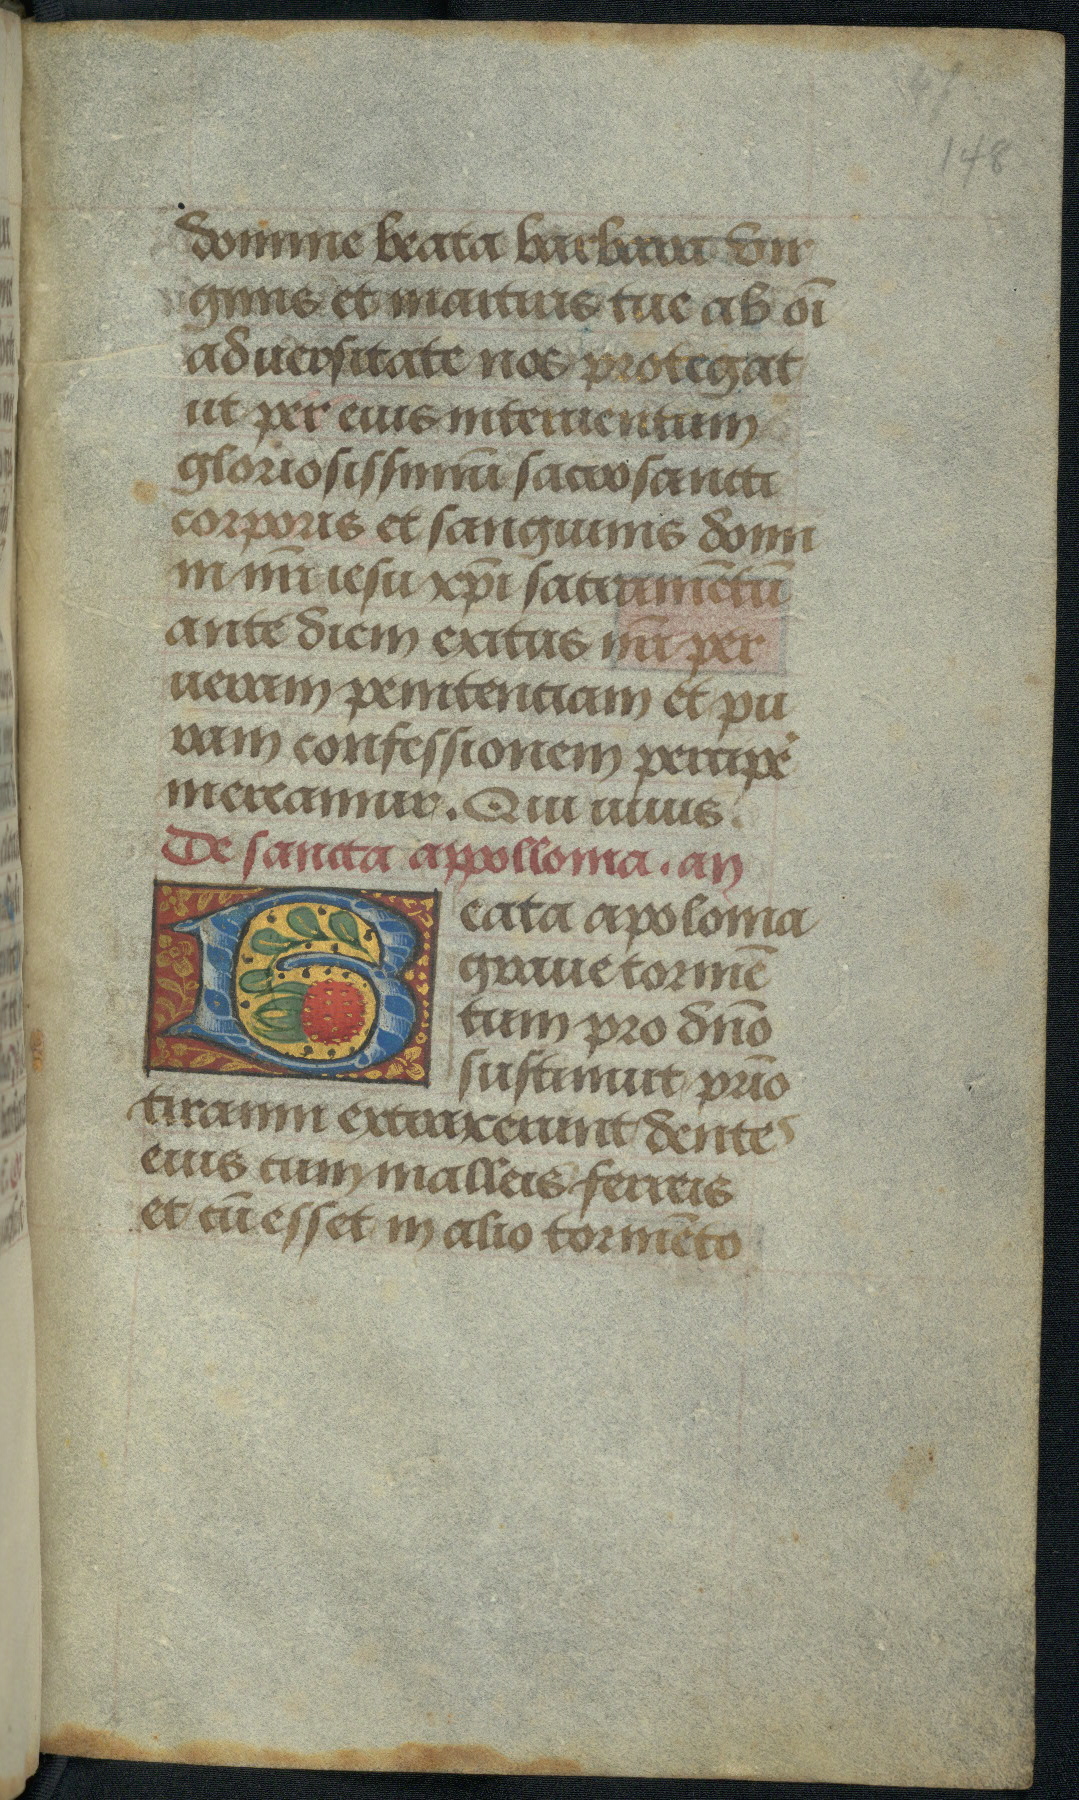 148
domine beata barbara vir
ginis et martiris tue ab oī
aduersitate nos protegat
ut per eius interuentum
gloriosissimū sacrosancti
corporis et sanguinis domi
ni nr̄i iesu xp̄i sacramētū
ante diem exitus nr̄i per
ueram penitentiam et pu
ram confessionem percipe᾽
mereamur. Qui uiuis.
De sancta appollonia. an
Beata apolonia
graue tormē
tum pro dn̄o
sustinuit prīo
tiranni extraxerunt dentes
eius cum malleis ferreis
et cū esset in alio tormēto